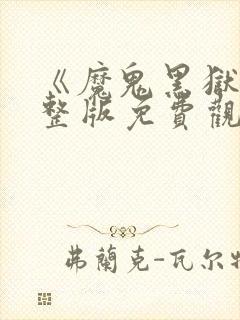 《魔鬼黑獄
整版免費觀
弗蘭克-瓦尔特